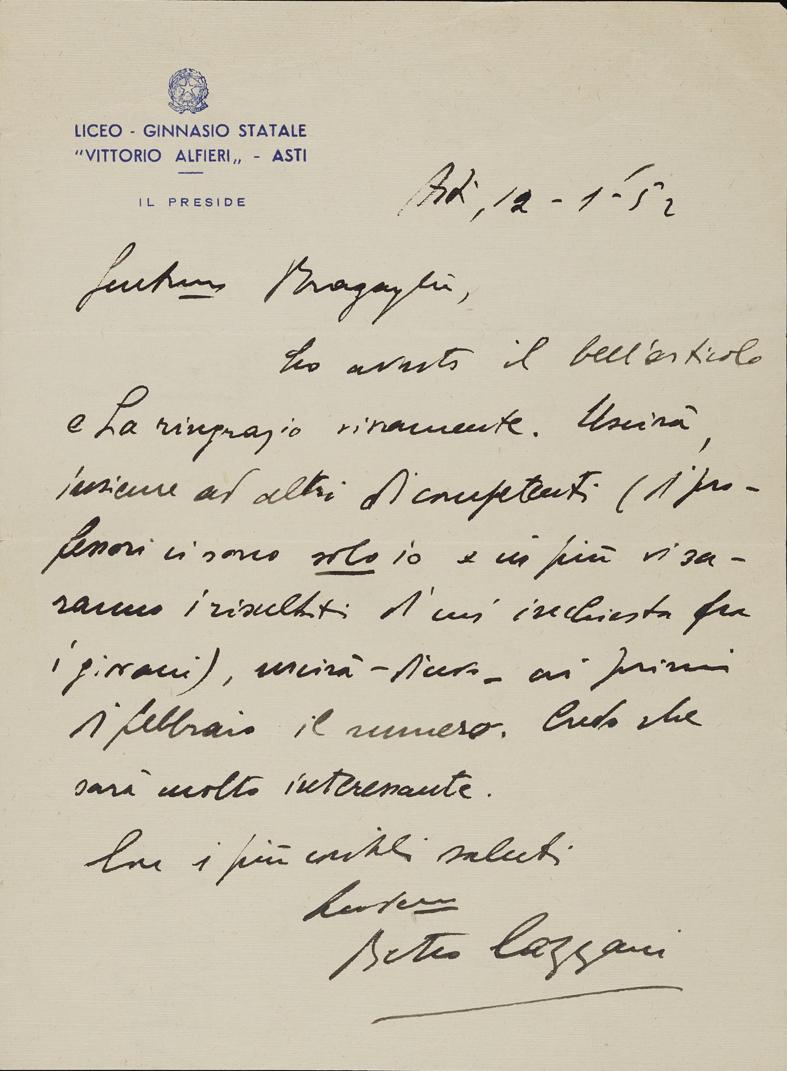 LICEO - GINNASIO STATALE
"VITTORIO ALFIERI„ - ASTI
IL PRESIDE
Asti, 12 - 1 - 52
Bragaglia,
ho avuto il bell'articolo
e La ringrazio vivamente. Uscirà,
insieme ad altri di competenti (di pro-
fessori ci sono solo io e in più vi sa-
ranno i risultati d'un'inchiesta fra
i giovani), uscirà - dicevo - ai primi
di febbraio il numero. Credo che
sarà molto interessante.
Con i più cordiali saluti
Pietro Cazzani